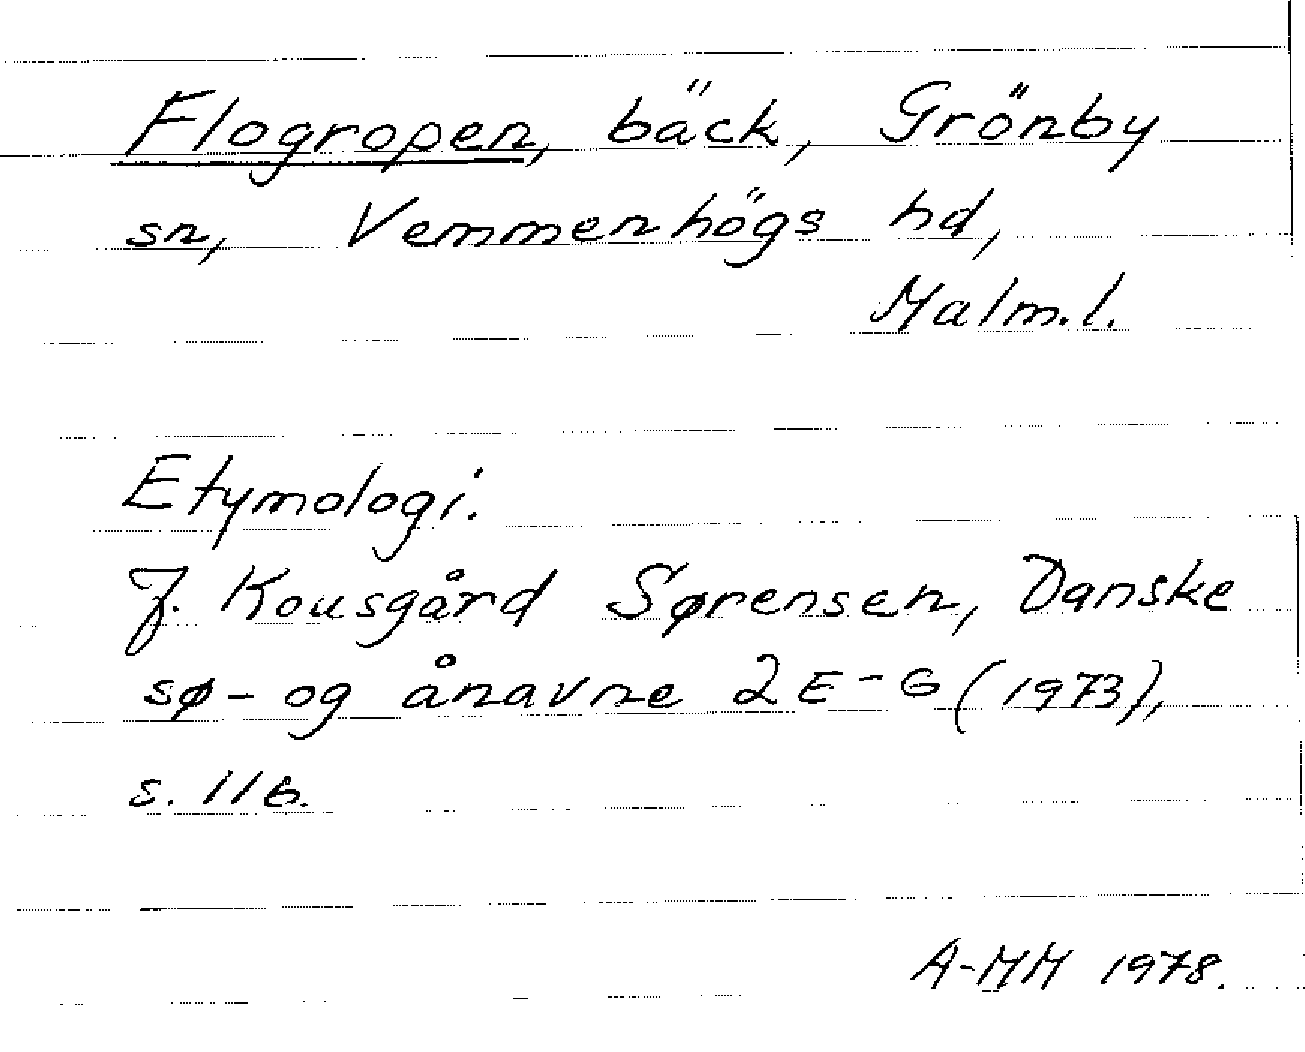 Flogropen, bäck, Grönby
sn, Vemmenhögs hd,
Malm.l.
Etymologi.
J. Kousgård Sørensen, Danske
sø- og ånavne 2 E-G (1973),
s. 116.
A-MM 1978.